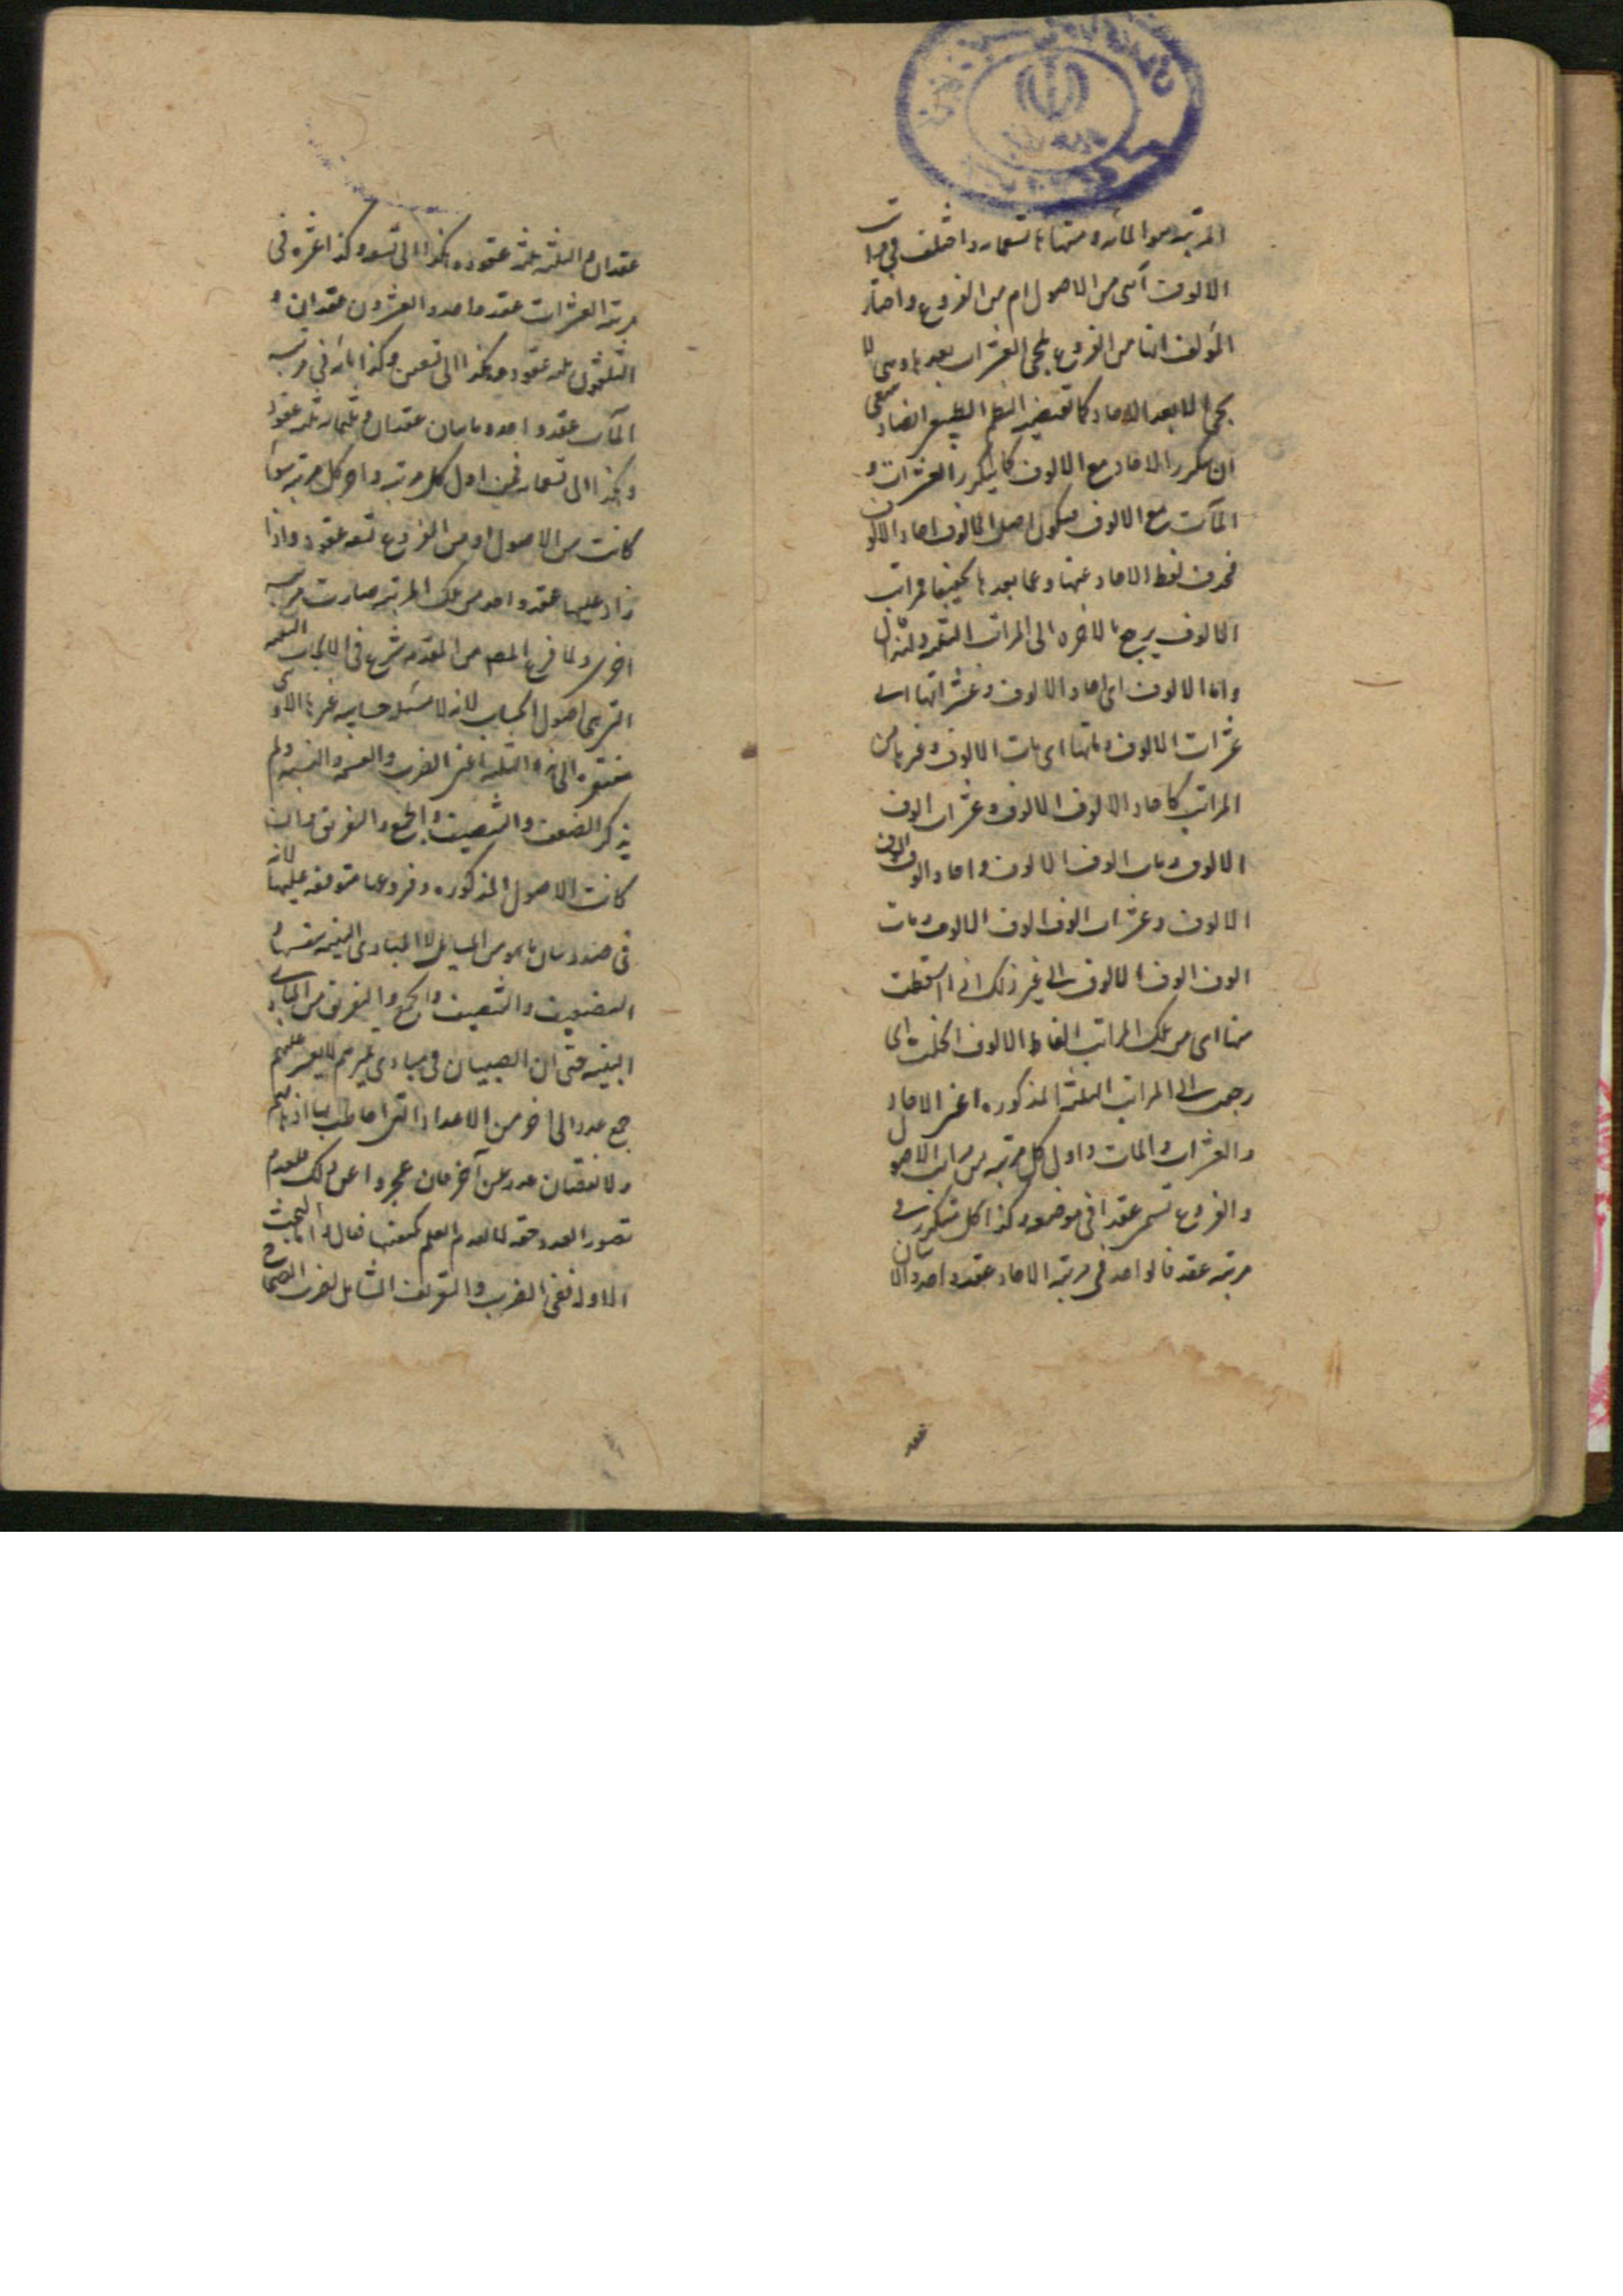 المرتبة هو المائه و منتهاها تسعمائه و اختلف في مراتب
الالوف أهى من الاصول ام من الفروع و اختار
المؤلف انها من الفروع لمجئ العشرات بعدها و هى لا
يجئ الا بعد الاحاد كما تقتضيه النظم الطبيعى ايضا
ان يتكرر الاحاد مع الالوف كما يتكرر العشرات و
المآت مع الالوف فيكون اصل الالوف احاد الالوف
فحذف لفظ الاحاد عنها و عما بعدها تخفيفا فمراتب
الالوف يرجع بالاخره الى المراتب
و اما الالوف اى احاد الالوف و عشراتها اى
عشرات الالوف و مآتها اى مات الالوف و غيرها من
المراتب كاحاد الالوف الالوف و عشرات الوف
الالوف و مات الوف الالوف و احاد الوف الوف
الالوف و عشرات الوف الوف الالوف و مات
الوف الوف الالوف الى غير ذلك اذا اسقطت
منها اى من تلك المراتب الفاظ الالوف انحلت اى
رجعت الى المراتب الثلثة المذكوره اعنى الاحاد
و العشرات و المات و اول كل مرتبه من مراتب الاصول
و الفروع تسمى عقدا فى موضعه و كذا كل متكرر فى
مرتبه عقد فالواحد فى مرتبة الاحاد عقد واحد و الاثنان
عقد
عقدان و الثلثه ثلثة عقود و هكذا الى تسعه و كذا عشره فى
مرتبة العشرات عقد واحد و العشرون عقدان و
الثلثون ثلثه عقود و هكذا الى تسعين و كذا مائه فى مرتبه
المآت عقد واحد و مايتان عقدان و ثلثمائه ثلثه عقود
و هكذا الى تسعمائه فبين اول كل مرتبه و اخر كل مرتبه سواء
كانت من الاصول او من الفروع تسعه عقود و اذا
زاد عليها عقد واحد من تلك المرتبه صارت مرتبه
اخرى و لما فرغ المصـ من المقدمه شرع فى الابحاث
التى هى اصول الحساب لانه لا مسئله حسابيه غيرها الا و هى
مفتقره الى هذه الثلثه اعنى الضرب و القسمه و النسبه و لم
يذكر التضعيف و التنصيف و الجمع و التفريق و ان
كانت الاصول المذكوره و فروعها متوقفه عليها لانه
فى صدد بيان ما هو من المسايل لا المبادى البينه بنفسها و
التضعيف و التنصيف و الجمع و التفريق من المبادى
البينه حتى ان الصبيان فى مبادى تميزهم لا يعسر عليهم
جمع عدد الى اخر من الاعداد التى احاطت بها اذهانهم
و لا نقصان عدد عن آخر فان عجزوا عن ذلك فلعدم
تصور العدد حقه لا لعدم العلم بكيفيتها فقال البحث
الاول ففى الضرب و التعريف الشامل لضرب الصحاح